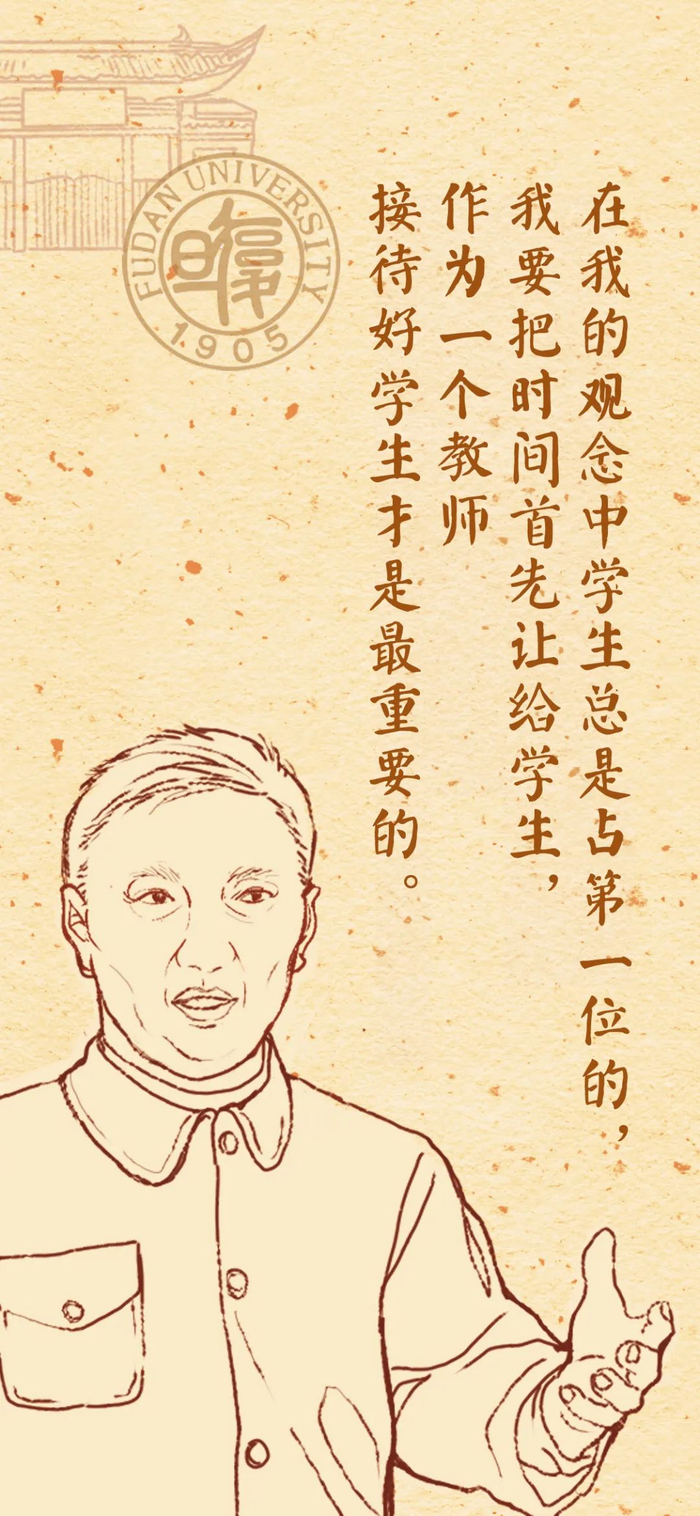 在我的观念中学生总是占第一位的，
我要把时间首先让给学生，
作为一个教师
接待好学生才是最重要的。
FUDAN UNIVERSITY
復旦
1905